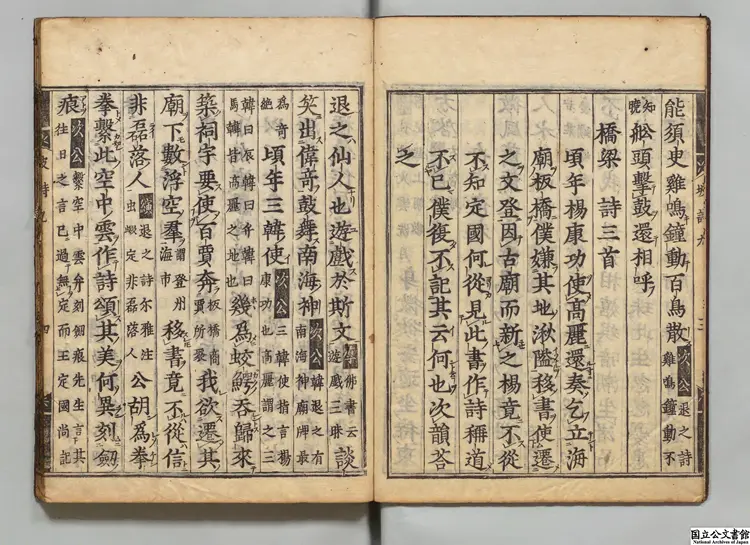 能須臾雞鳴鐘動百鳥散次公退之詩雞鳴鐘動不
知曉舩頭擊鼓還相呼
橋梁 詩三首
頃年楊康功使高麗還奏乞立海
廟板橋僕嫌其地湫隘移書使遷
之文登因古廟而新之楊竟不從
不知定國何從見此書作詩稱道
不已僕復不記其云何也次韻荅
之
退之仙人也遊戲於斯文佛書云遊戲三昧談
笑出偉奇鼓舞南海神次公韓退之有南海神廟碑最
為奇絶頃年三韓使次公三韓使指言楊康功也高麗謂之三
韓曰辰韓曰弁韓曰馬韓皆高麗之地也幾為蛟鰐吞歸來
築祠宇要使百賈奔板橋商賈所聚我欲遷其
廟下數浮空羣謂登州海市移書竟不從信
非磊落人退之詩尔雅注虫蝦定非磊落人公胡為拳
拳繫此空中雲作詩頌其美何異刻劒
痕次公繫空中雲弁刻劒痕先生言其往日之言已過無定而王定國尚記
國立公文書館
National Archives of Japan